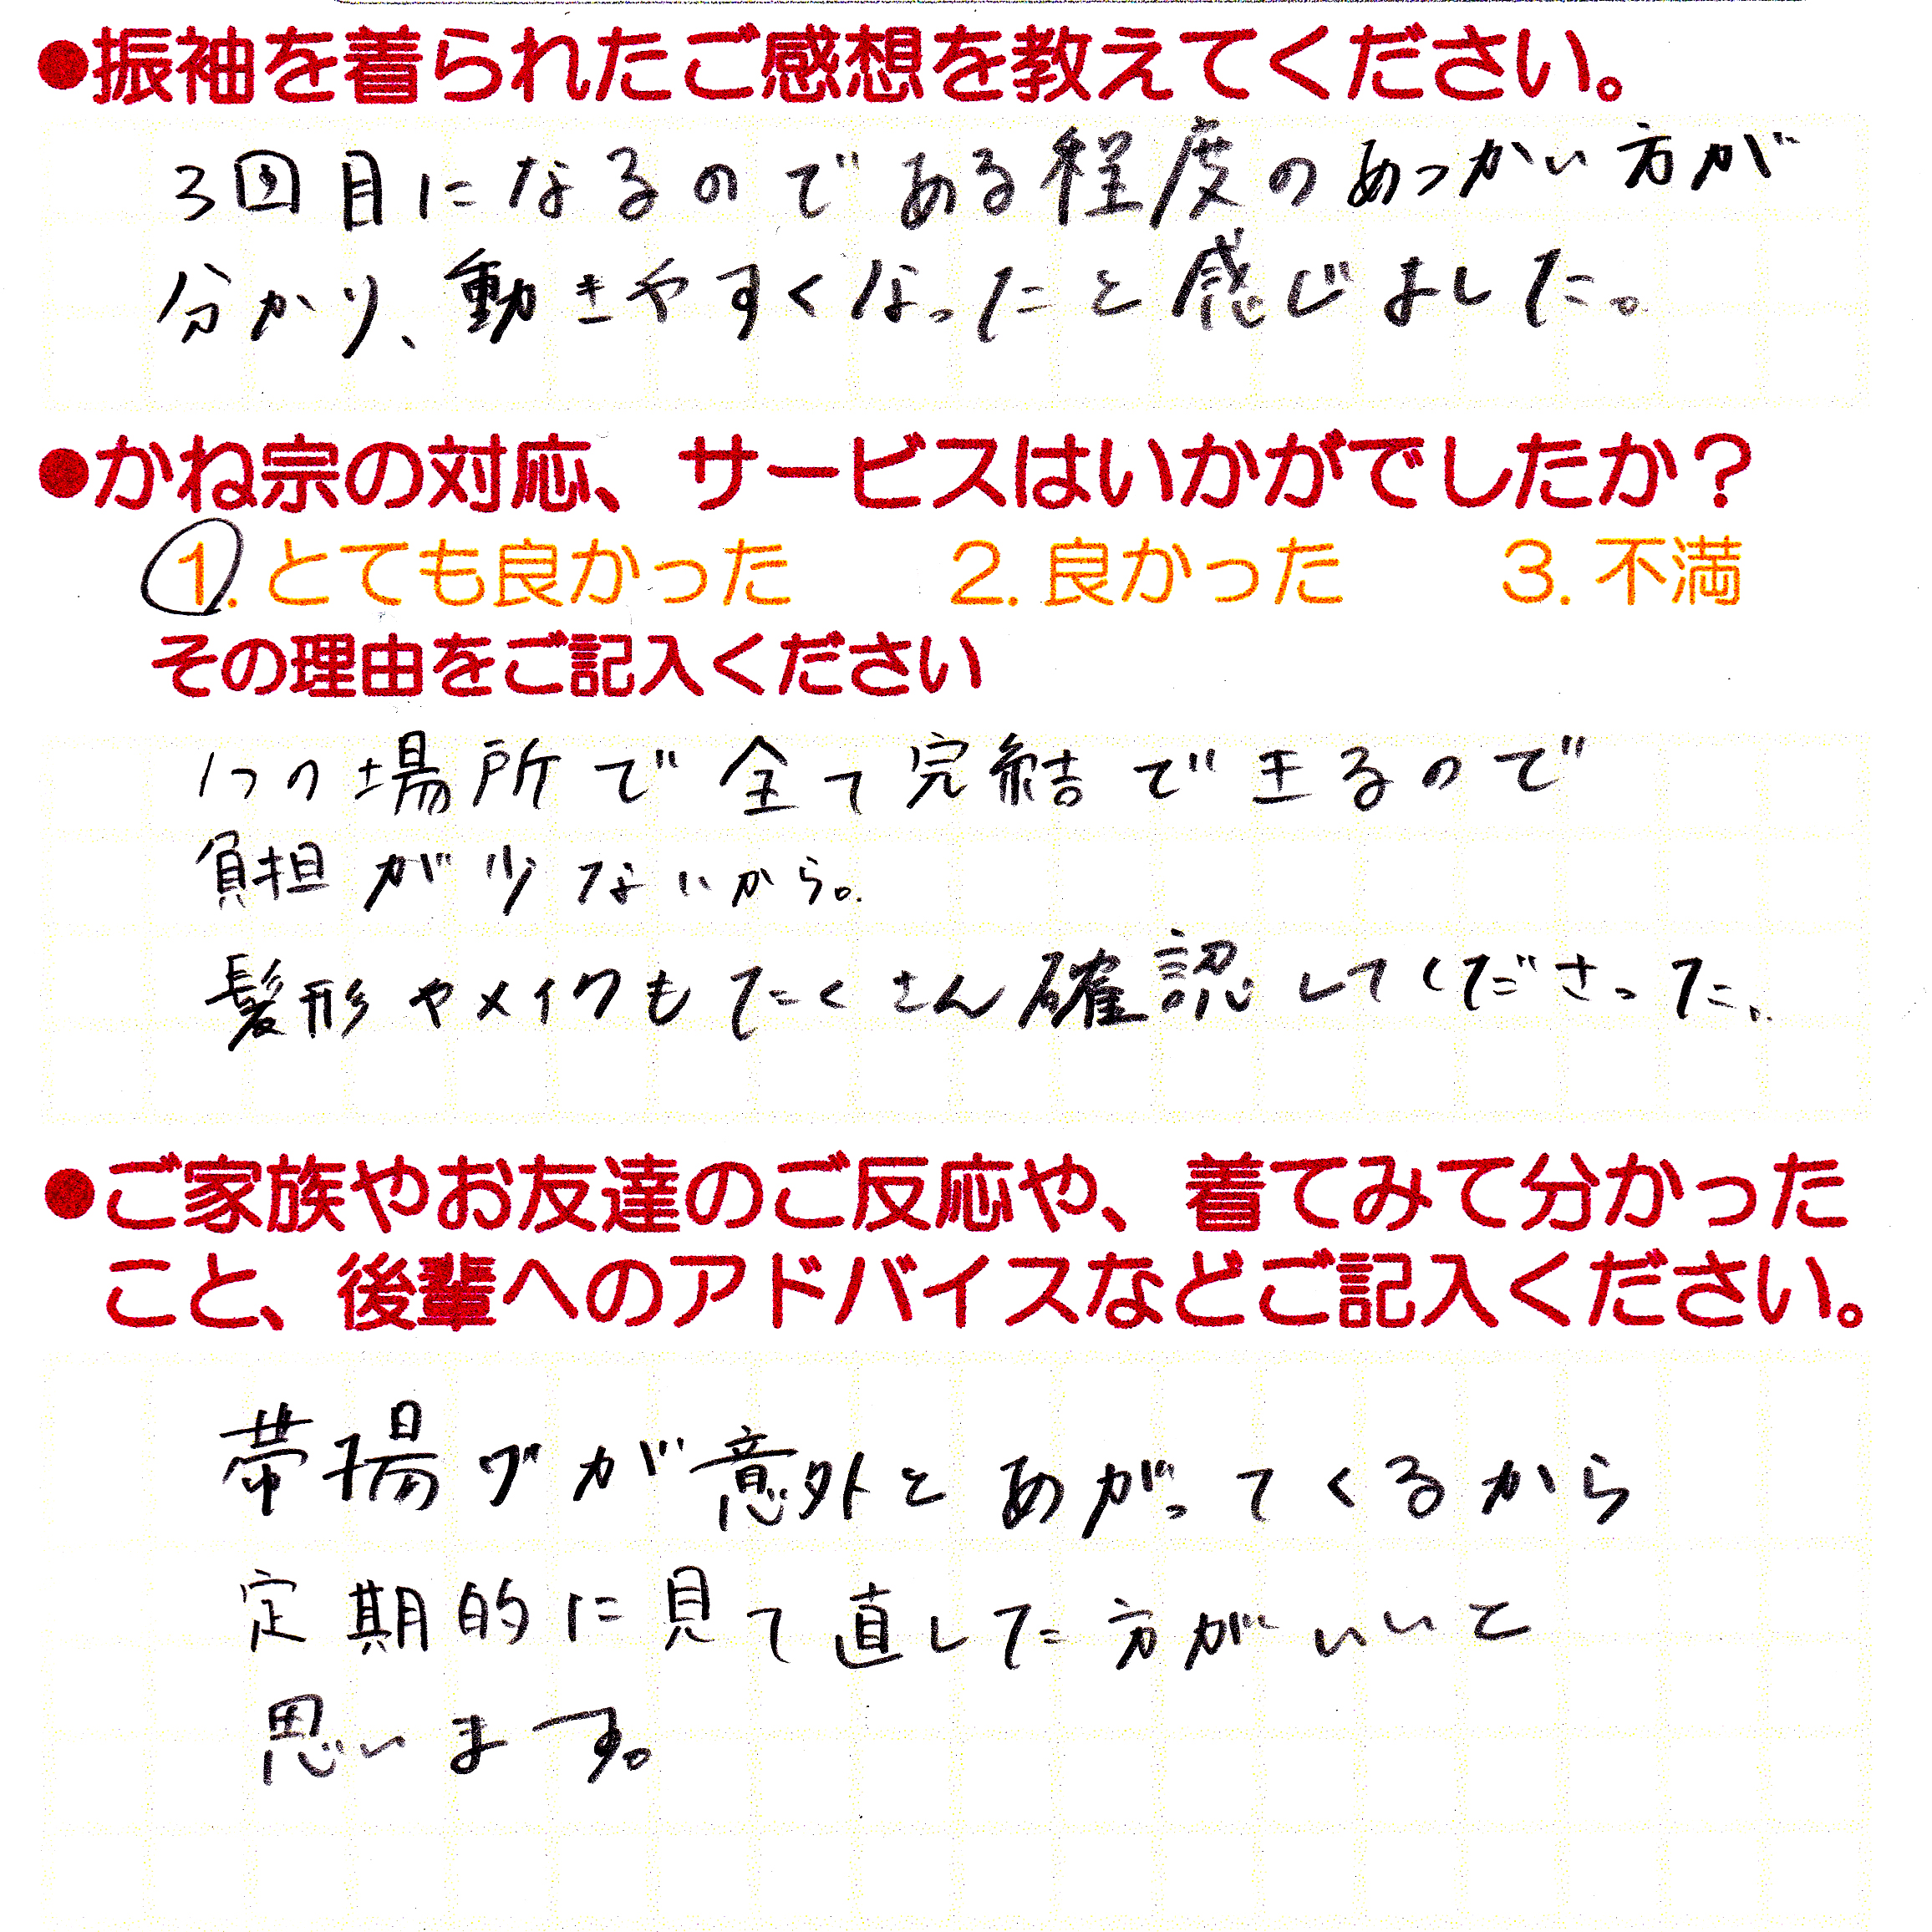 ●振袖を着られたご感想を教えてください。
3回目になるのである程度のあつかい方が
分かり、動きやすくなったと感じました。
●かね宗の対応、サービスはいかがでしたか？
1. とても良かった　2. 良かった　3. 不満
その理由をご記入ください
1つの場所で全て完結できるので
負担が少ないから。
髪形やメイクもたくさん確認してくださった。
●ご家族やお友達のご反応や、着てみて分かった
こと、後輩へのアドバイスなどご記入ください。
帯揚げが意外とあがってくるから
定期的に見て直した方がいいと
思います。